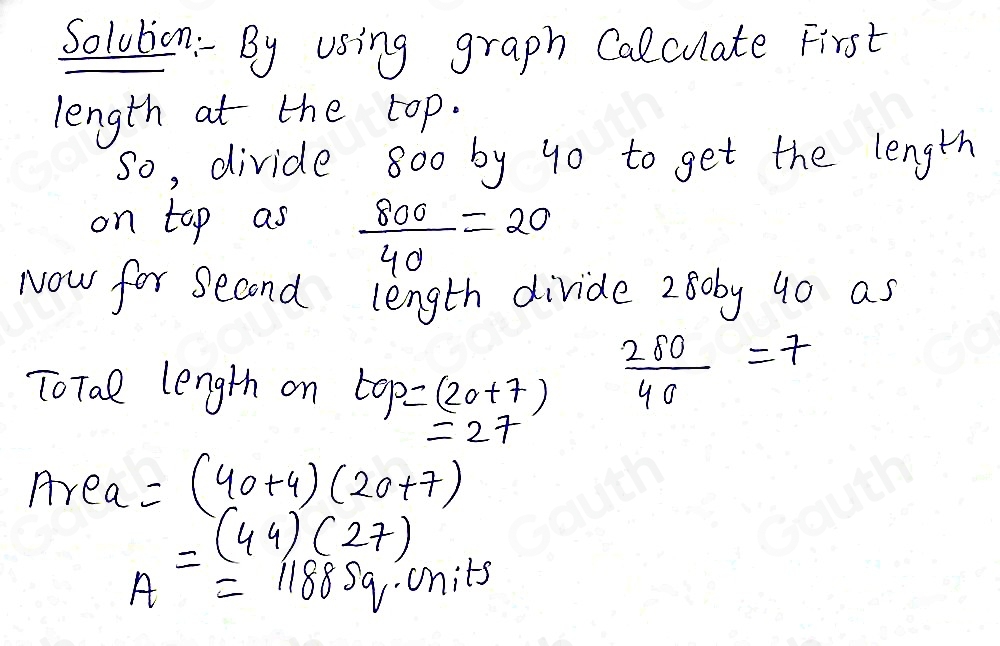 Solution:- By using graph Calculate First
length at the top.
So, divide 800 by 40 to get the length
on top as 800/40 = 20
Now for Second length divide 280 by 40 as
280/40 = 7
Total length on top = (20+7)
= 27
Area = (40+4)(20+7)
= (44)(27)
A = 1188 Sq. units
Gauth